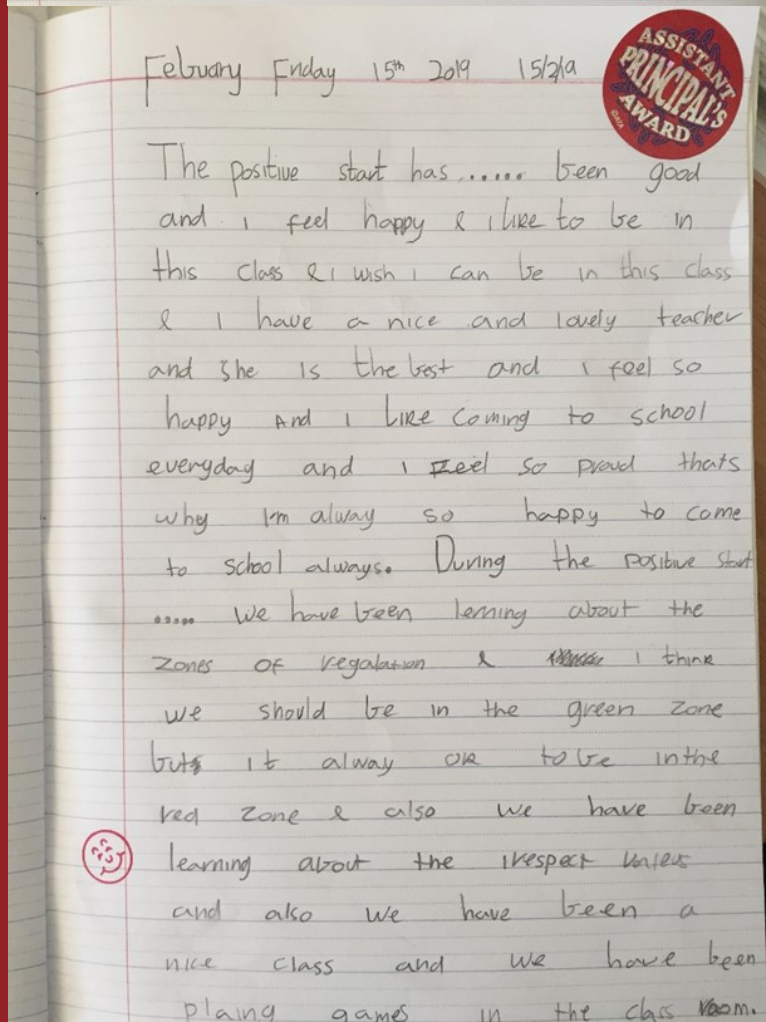 Febuary Friday 15th 2019 15/2/19
ASSISTANT
PRINCIPAL'S
AWARD
The positive start has ..... been good
and i feel happy & i like to be in
this class & i wish i can be in this class
& I have a nice and lovely teacher
and She is the best and i feel so
happy And i like coming to school
everyday and i feel so proud thats
why I'm alway so happy to come
to school always. During the positive start
..... we have been lerning about the
zones of regalation & i think
we should be in the green zone
but it alway ok to be in the
red zone & also we have been
learning about the irespect
and also we have been a
nice class and we have been
plaing games in the class room.